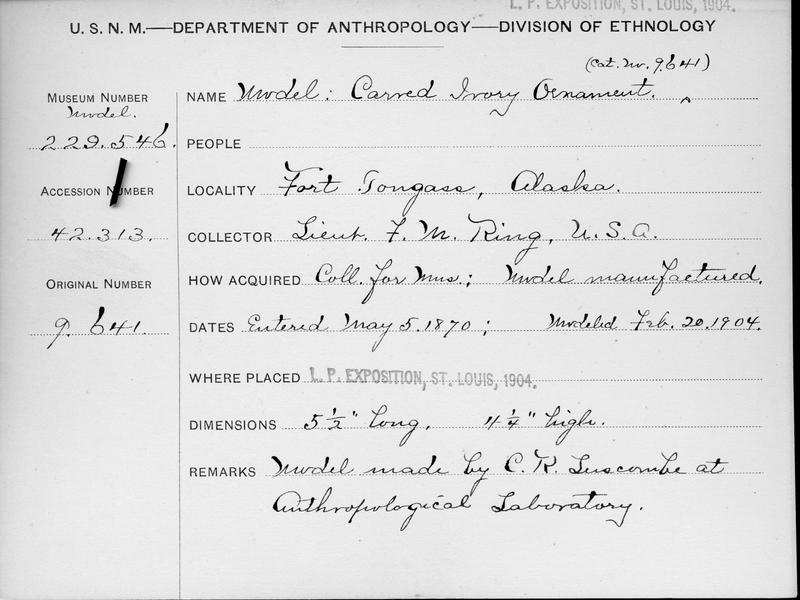 L. P. EXPOSITION, ST. LOUIS, 1904.
U. S. N. M.—DEPARTMENT OF ANTHROPOLOGY—DIVISION OF ETHNOLOGY
(Cat. No. 9.641)
MUSEUM NUMBER
Model.
229.546.
NAME Model: Carved Ivory Ornament. ^
PEOPLE
ACCESSION NUMBER
42.313.
LOCALITY Fort Tongass, Alaska.
COLLECTOR Lieut. F. M. Ring, U.S.A.
ORIGINAL NUMBER
9.641.
HOW ACQUIRED Coll. for Mus.; Model manufactured.
DATES Entered May 5. 1870; Modeled Feb. 20. 1904.
WHERE PLACED L. P. EXPOSITION, ST. LOUIS, 1904.
DIMENSIONS 5 1/2" long, 4 1/4" high.
REMARKS Model made by C. R. Luscombe at
Anthropological Laboratory.